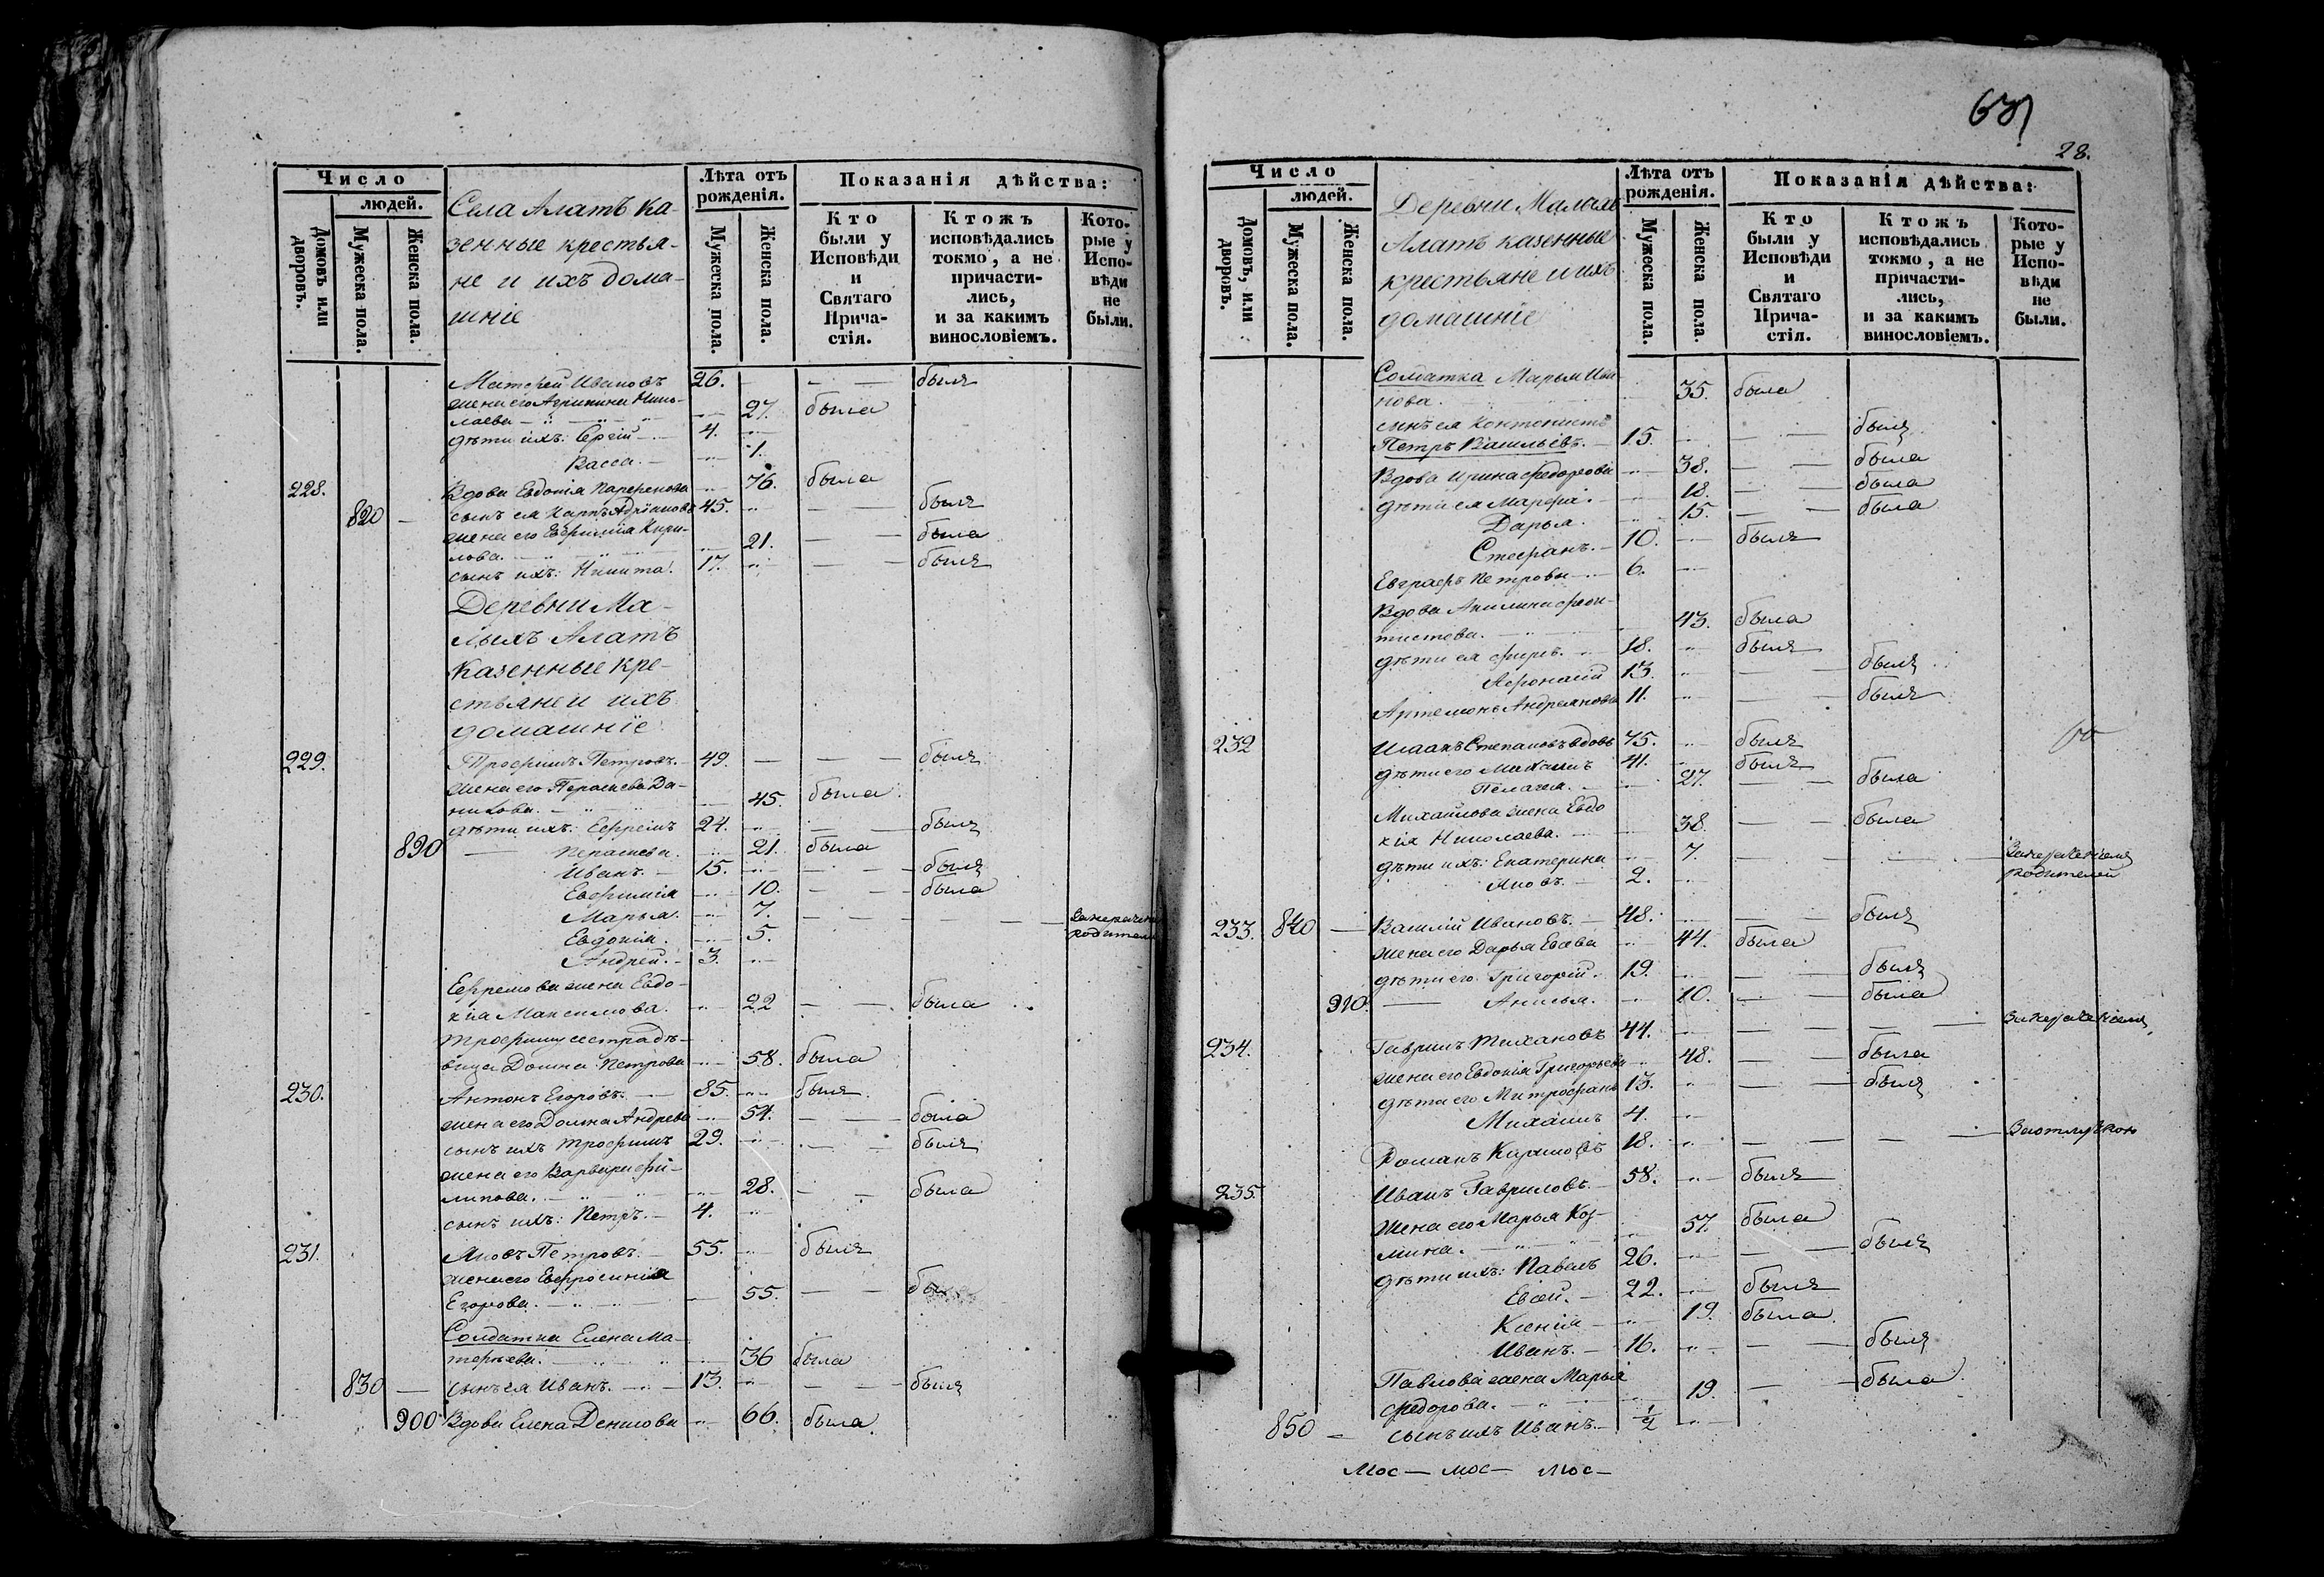 Число
людей.
Домовъ или дворовъ.
Мужеска пола.
Женска пола.
Села Алатъ ка-
зенные крестья-
не и ихъ дома-
шніе
Лѣта отъ рожденія.
Мужеска пола.
Женска пола.
Показанія дѣйства:
Кто были у Исповѣди и Святаго Прича-стія.
Ктожъ исповѣдались токмо, а не причасти-лись, и за какимъ винословіемъ.
Кото-рые у Испо-вѣди не были.
Матфей Ивановъ 26. былъ
жена его Агрипина Нико-
лаева 27. была
дѣти ихъ: Сергій 4.
Васса. 1.
228. Вдова Евдокія Парфенова 76. была
820 сынъ ея Карпъ Адріановъ 45. былъ
жена его Евфимія Кири-
лова. 21. была
сынъ ихъ: Никита. 17. былъ
Деревни Ма-
лыхъ Алатъ
казенные кре-
стьяне и ихъ
домашніе
229. Трофимъ Петровъ. 49. былъ
жена его Параскева Да-
нилова. 45. была
дѣти ихъ: Ефремъ 24. былъ
890 Параскева. 21. была
Иванъ. 15. былъ
Евфимія 10. была
Марья. 7.
Евдокія. 5. родителей
Андрей. 3.
Ефремова жена Евдо-
кія Максимова. 22 была
Трофиму сестра дѣ-
вица Домна Петрова 58. была
230. Антонъ Егоровъ. 85. былъ
жена его Домна Андреева 54. была
сынъ ихъ Трофимъ 29. былъ
жена его Варвара Фи-
липова. 28. была
сынъ ихъ: Петръ. 4.
231. Яковъ Петровъ. 55. былъ
жена его Евфросинія
Егорова. 55.
Солдатка Елена Ма-
тфеева. 36 была
830 сынъ ея Иванъ. 13. былъ
900 Вдова Елена Денисова 66. была
28.
Число
людей.
Домовъ, или дворовъ.
Мужеска пола.
Женска пола.
Деревни Малыхъ
Алатъ казенные
крестьяне и ихъ
домашніе
Лѣта отъ рожденія.
Мужеска пола.
Женска пола.
Показанія дѣйства:
Кто были у Исповѣди и Святаго Прича-стія.
Ктожъ исповѣдались токмо, а не причасти-лись, и за какимъ винословіемъ.
Кото-рые у Испо-вѣди не были.
Солдатка Марья Ива-
нова. 35. была
сынъ ея кантонистъ
Петръ Васильевъ. 15. былъ
Вдова Ирина Федорова 38. была
дѣти ея Марфа. 18. была
Дарья. 15. была
Стефанъ. 10. былъ
Евграфъ Петровы 6.
Вдова Акилина
43. была
дѣти ея Фирсъ. 18. былъ
Афонасій 13. былъ
Артемонъ Андреяновы 11. былъ
232 Исаакъ Степановъ вдовъ 75. былъ
дѣти его Михаилъ 41. былъ
Пелагея. 27. была
Михайлова жена Евдо
кія Николаева. 38. была
дѣти ихъ: Екатерина 7. родителей
Яковъ. 2.
233. 840 Василій Ивановъ. 48. былъ
жена его Дарья 44. была
дѣти его Григорій. 19. былъ
910 Анисья. 10. была
234. Гаврилъ Тихановъ 44.
жена его Евдокія Григорьева 48. была
дѣти его Митрофанъ 13. былъ
Михаилъ 4.
Романъ 18. За отлучкою
235. Иванъ Гавриловъ. 58. былъ
жена его Марья Коз-
мина. 57. была
дѣти ихъ: Павелъ 26. былъ
22. былъ
Ксенія 19. была
Иванъ. 16. былъ
Павлова жена Марья
Федорова. 19. была
850 сынъ ихъ Иванъ. 1/2